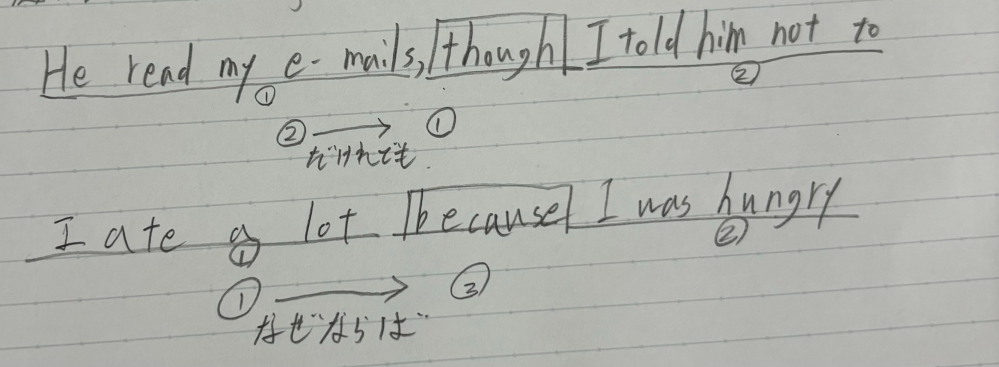 He read my e-mails, though I told him not to
① ②
② → ①
だけれども
I ate a lot because I was hungry
① ②
① → ②
なぜならば